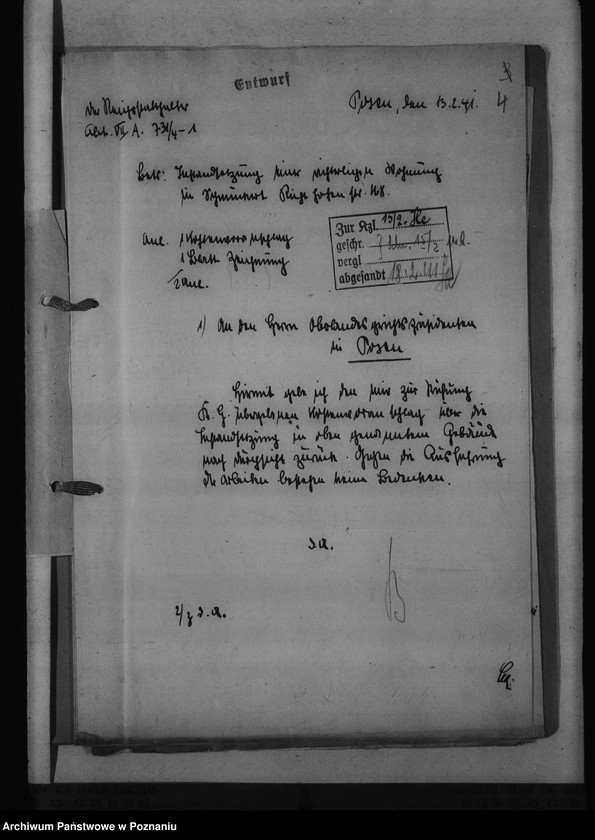 Entwurf
Der Reichsstatthalter
Abt. VII A. 731/4-1
Posen, den 13.2.41.
4
Betr: Instandsetzung einer richterlichen Wohnung
in
Anl. 1 Kostenvoranschlag
1 Blatt Zeichnung
2 Anl.
Zur Kzl. 15/2. He
geschr. 15/2
vergl.
abgesandt 18.2.
1) An den Herrn Oberlandesgerichtspräsidenten
in Posen
Hiermit gebe ich den mir zur Prüfung
übergebenen Kostenvoranschlag über die
Instandsetzung in oben genanntem Gebäude
nach Durchsicht zurück. Gegen die Ausführung
der Arbeiten bestehen keine Bedenken.
I.A.
2/ z.d.A.
Archiwum Państwowe w Poznaniu